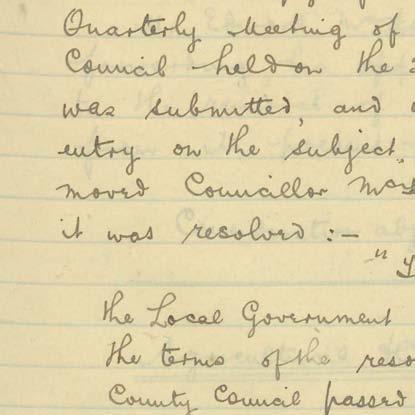 Quarterly Meeting of
Council held on the
was submitted, and
entry on the subject,
moved Councillor
it was resolved:—
"
the Local Government
the terms of the
County Council passed